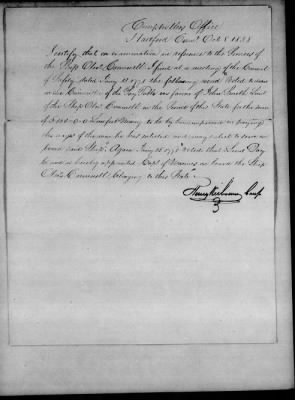 Comptrollers Office
Hartford Conn Oct 8 1838
I certify that on examination in reference to the Services of
the Ship Olivr Cromwell I find at a meeting of the Council
of Safety dated Jany 13 1778 the following word Voted to draw
on the Committee of the Pay Table in favour of John Smith Lieut
of the Ship Olivr Cromwell in the Service of this State for the sum
of Lawful Money to be by him improved in paying
the wages of the men he has enlisted and may enlist to serve on
board said Ship. Again Jany 1778 Voted that Day
be and is hereby appointed Capt of Marines on board the Ship
Olivr Cromwell belonging to this State
Henry Kilbourn Comp
3